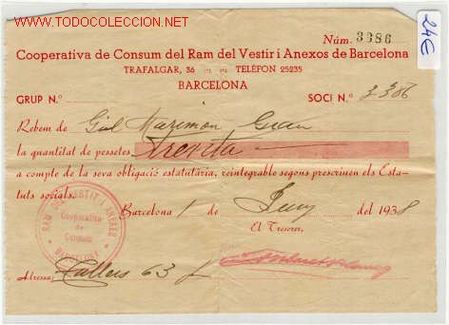 TODOCOLECCION.NET
24€
Núm. 3386
Cooperativa de Consum del Ram del Vestir i Anexos de Barcelona
TRAFALGAR, 36 TELÈFON 25235
BARCELONA
GRUP N.º SOCI N.º 3386
Rebem de Gil Marimon Grau
la quantitat de pessetes trenta
a compte de la seva obligació estatutària, reintegrable segons prescriuen els Esta-
tuts socials.
Barcelona 1 de Juny del 1938
El Tresorer,
RAM DEL VESTIT I ANEXES
Cooperativa
de
Consum
BARCELONA
Adressa: Tallers 63